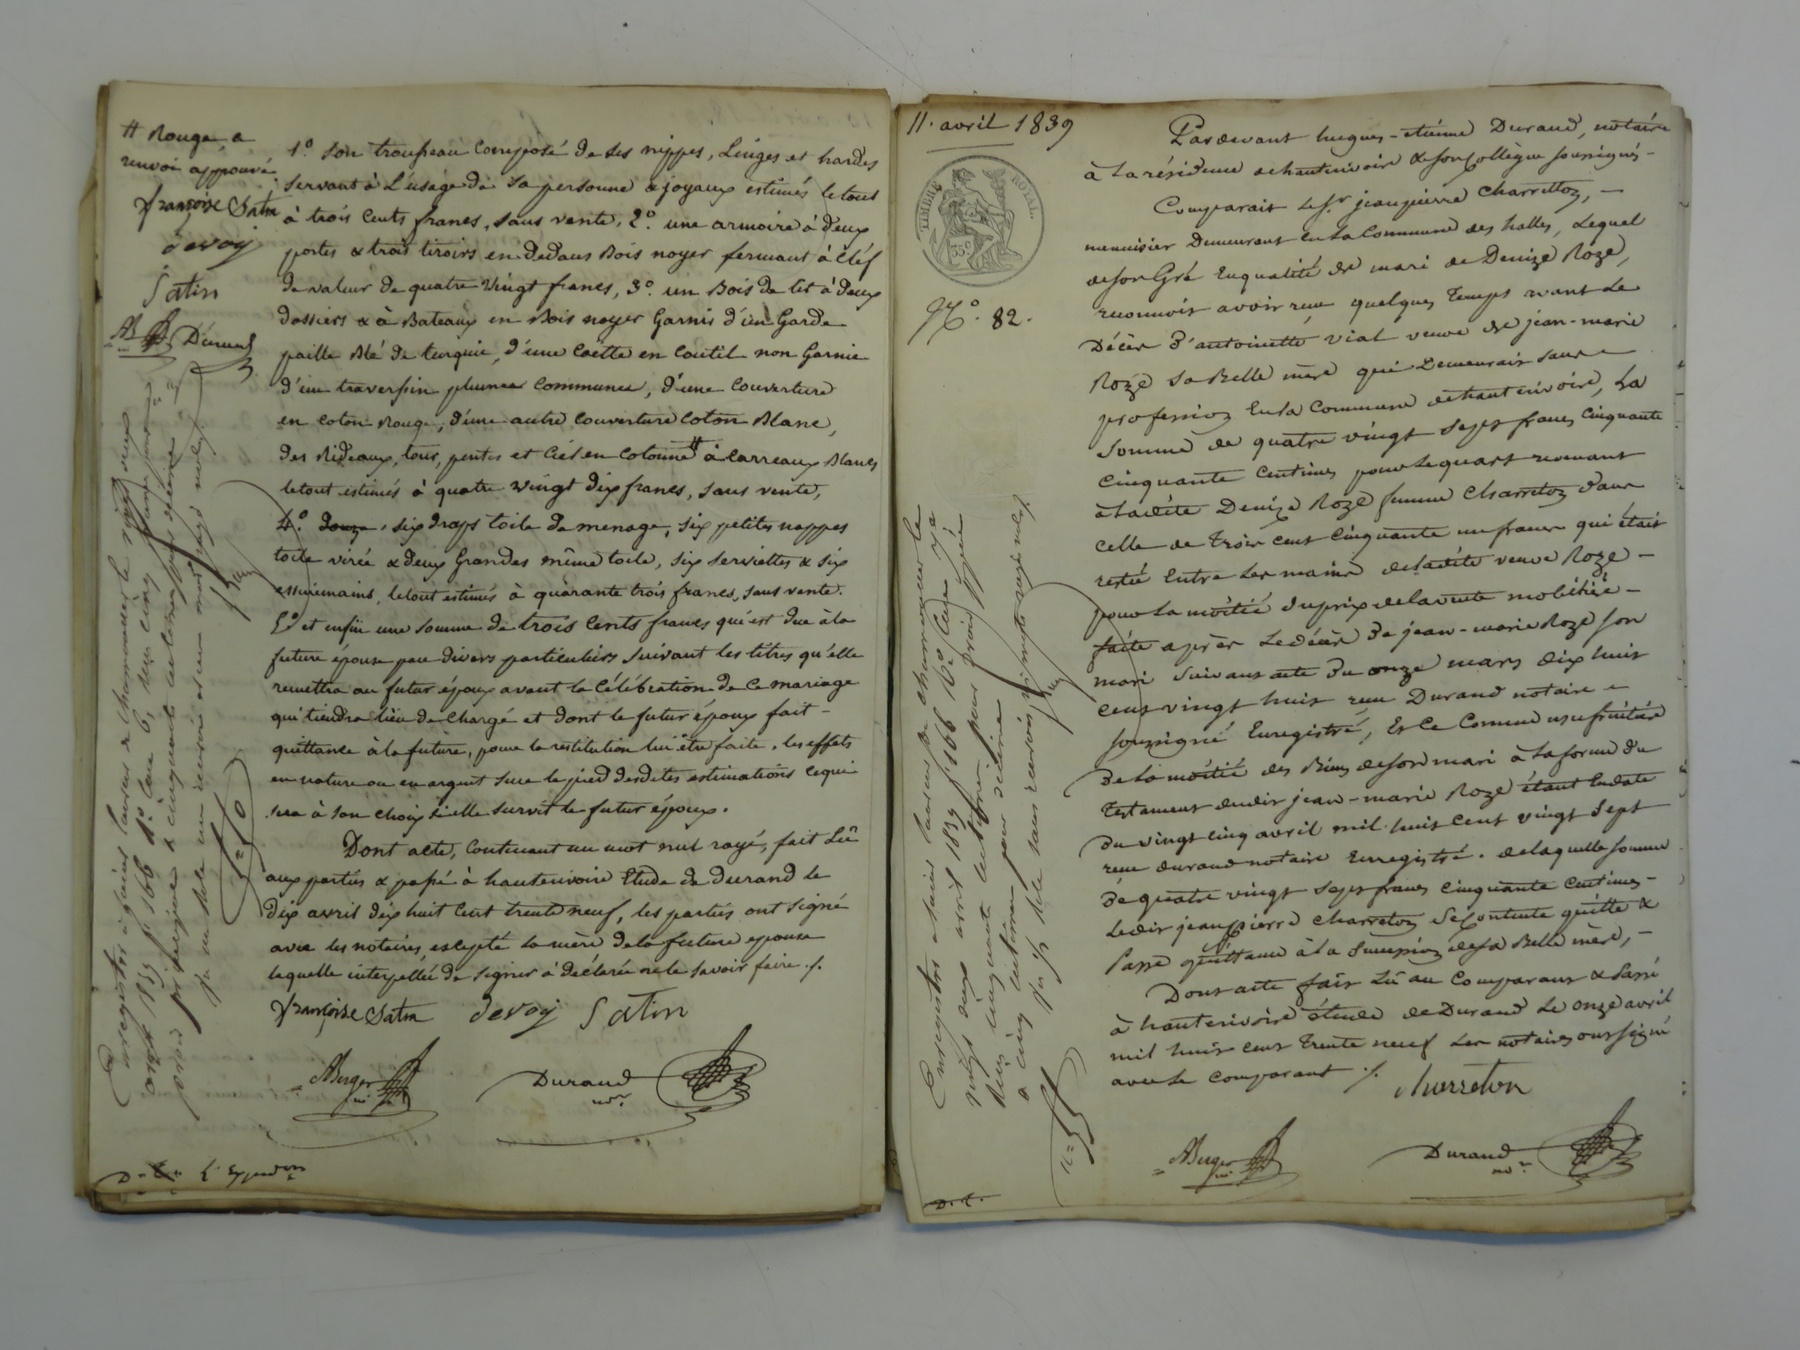 # Rouge, a
renvoi approuvé
françoise Satin
devoy
Satin
AB Durand
1.° Son trousseau composé de ses nippes, Linges et hardes
servant à L'usage de sa personne & joyaux estimés le tout
à trois cents francs, sans vente, 2.° une armoire à deux
portes & trois tiroirs en dedans Bois noyer fermant à cléf
de valeur de quatre vingt francs, 3.° un Bois de lit à deux
dossiers & à Bateaux en Bois noyer Garnis d'un Garde
paille Blé de turquie, d'une Coëtte en Coutil non Garnie
d'un traversin plumes Communes, d'une Couverture
en coton Rouge, d'une autre Couverture Coton Blanc,
des Rideaux, tour, pentes et Ciel en Cotonne # à Carreaux Blancs
le tout estimés à quatre vingt dix francs, sans vente,
4.° douze, six draps toile de menage, six petites nappes
toile virée & deux Grandes même toile, six serviettes & six
essuiemains, le tout estimés à quarante trois francs, sans vente.
5.° et enfin une somme de trois Cents francs qui est due à la
future épouse par divers particuliers suivant les titres qu'elle
remettra au futur époux avant la Célébration de Ce mariage
qui tiendra lieu de charge et dont le futur époux fait -
quittance à la future, pour la restitution lui être faite, les effets
en nature ou en argent sur le pied desdites estimations Ce qui
sera à son choix si elle survit le futur époux.
Dont acte, Contenant un mot nul rayé, fait Lû
aux parties & passé à hauterivoire Etude de Durand le
dix avril dix huit Cent trente neuf, les parties ont signé
avec les notaires, excepté la mère de la future epouse
laquelle interpellée de signer a déclaré ne le savoir faire ./.
françoise Satin devoy Satin
ABerger Durand
nore
11. avril 1839
TIMBRE ROYAL
35c
N.° 82.
Pardevant hugues-etienne Durand, notaire
à la résidence de hauterivoire & son Collègue soussignés -
Comparait le S.r jean pierre Charretton, -
menuisier Demeurant en la Commune des halles, Lequel
de son Gré En qualité de mari de Denize Roze,
reconnoit avoir reçu quelques Temps avant Le
Décès D'antoinette vial veuve de jean-marie
Roze sa Belle mère qui Demeurait sans
profession En la Commune de hauterivoire, La
somme de quatre vingt sept francs Cinquante
Cinquante Centimes pour Le quart revenant
à Ladite Denize Roze femme Charreton dans
Celle de Trois Cent Cinquante un francs qui était
restée Entre Les mains de Ladite veuve Roze -
pour La moitié du prix de la vente mobiliére -
faite après Le décès De jean-marie Roze son
mari suivant acte Du onze mars dix huit
Cent vingt huit reçu Durand notaire
soussigné Enregistré, Et Ce Comme usufruitière
De La moitié des Biens de son mari à La forme du
Testament dudit jean-marie Roze étant En date
Du vingt cinq avril mil huit Cent vingt sept
reçu Durand notaire Enregistré. de laquelle somme
De quatre vingt sept francs Cinquante Centimes -
Ledit jean pierre Charreton Se Contente quitte &
Passe quittance à La Succession de Sa Belle mère, -
Dont acte fait Lû au Comparant & Passé
à hauterivoire étude de Durand Le onze avril
mil huit Cent Trente neuf Les notaires ont signé
avec Le Comparant ./.
charreton
ABerger Durand
nore